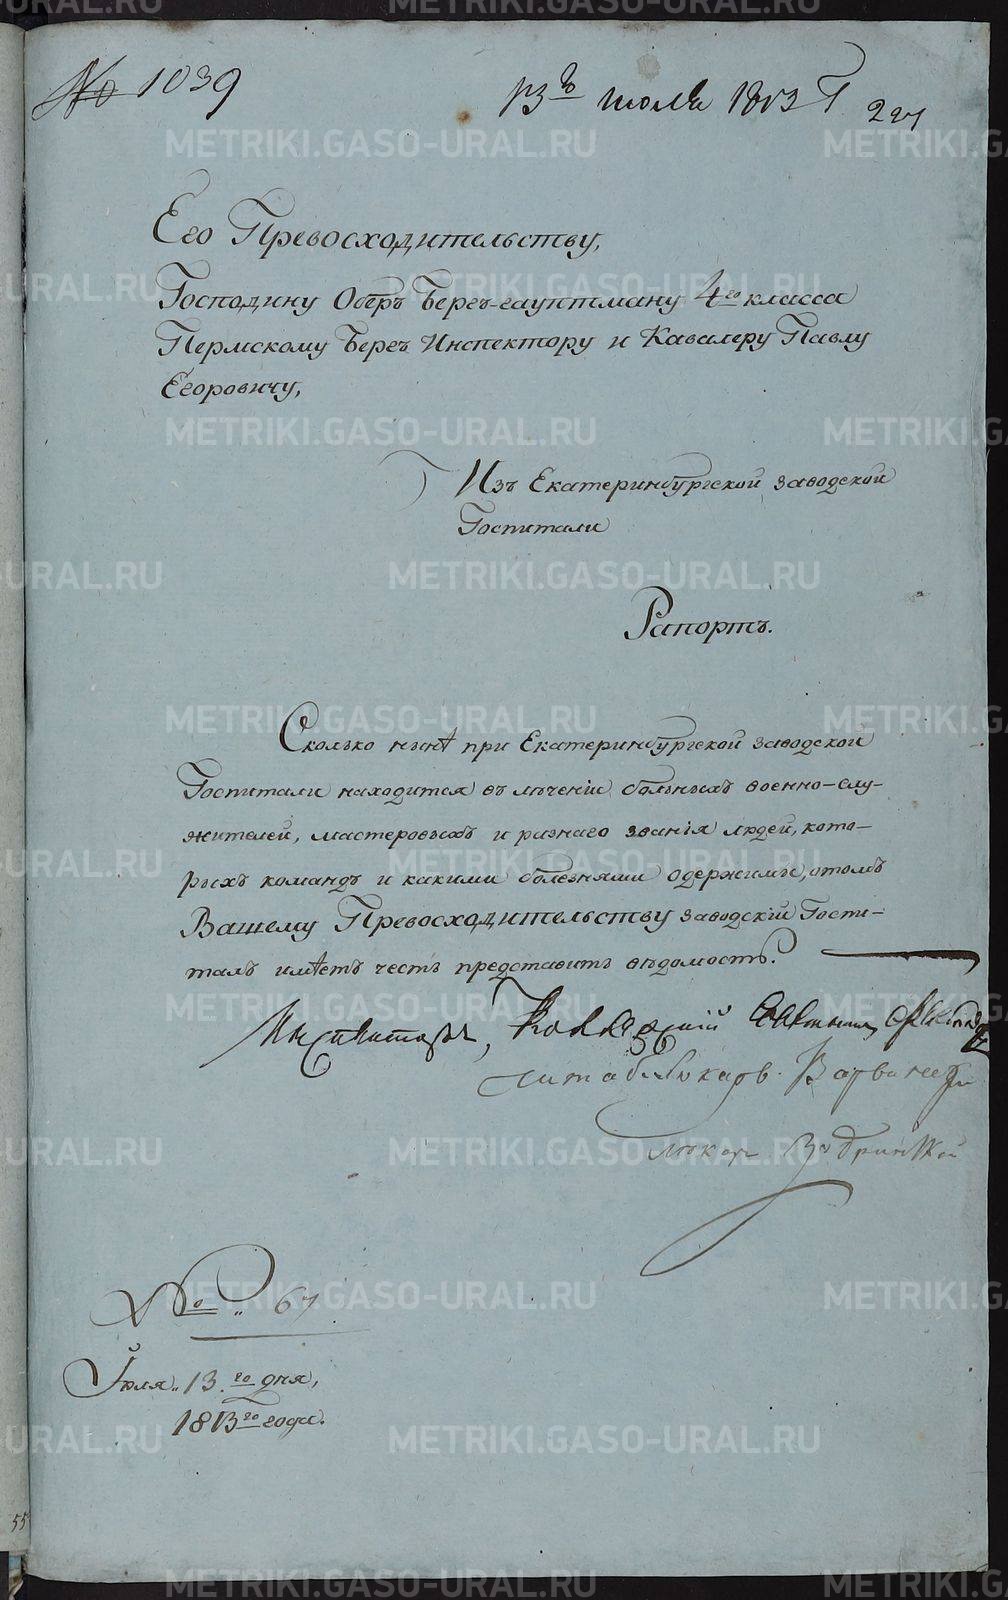 № 1039
13го июля 1813 г
Его Превосходительству,
Господину Оберъ Бергъ-гауптману 4го класса
Пермскому Бергъ Инспектору и Кавалеру Павлу
Егоровичу,
Изъ Екатеринбургской заводской
Госпитали
Рапортъ.
Сколько нынѣ при Екатеринбургской заводской
Госпитали находится въ лѣченіи больныхъ военно-слу-
жителей, мастеровыхъ и разнаго званія людей, кото-
рыхъ командъ и какими болезнями одержимы, отомъ
Вашему Превосходительству заводскій Госпи-
таль имѣетъ честь представить вѣдомость.
Инспекторъ, Коллежскій Советникъ
штабълѣкарь
лѣкарь
№ 67
Іюля 13го дня,
1813го года.
METRIKI.GASO-URAL.RU